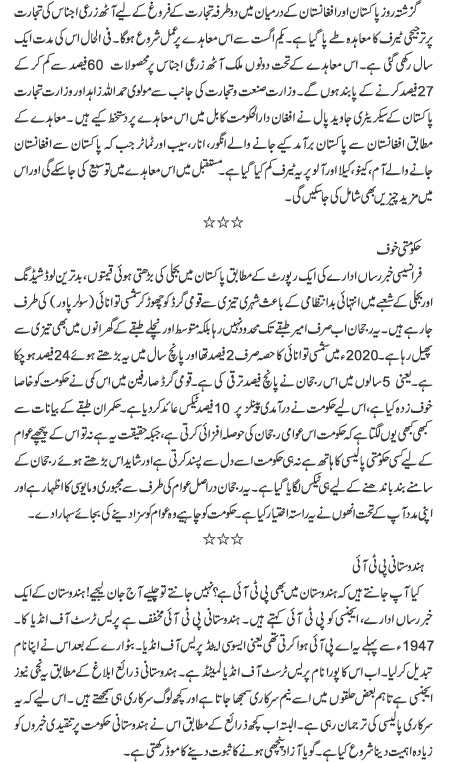 گزشتہ روز پاکستان اور افغانستان کے درمیان میں دو طرفہ تجارت کے فروغ کے لیے آٹھ زرعی اجناس کی تجارت
پر ترجیحی ٹیرف کا معاہدہ طے پا گیا ہے۔ یکم اگست سے اس معاہدے پر عمل شروع ہوگا۔ فی الحال اس کی مدت ایک
سال رکھی گئی ہے۔ اس معاہدے کے تحت دونوں ملک آٹھ زرعی اجناس پر محصولات 60 فیصد سے کم کر کے
27 فیصد کرنے کے پابند ہوں گے۔ وزارت صنعت و تجارت کی جانب سے مولوی حمد اللہ زاہد اور وزارت تجارت
پاکستان کے سیکریٹری جاوید پال نے افغان دارالحکومت کابل میں اس معاہدے پر دستخط کیے ہیں۔ معاہدے کے
مطابق افغانستان سے پاکستان برآمد کیے جانے والے انگور، انار، سیب اور ٹماٹر جب کہ پاکستان سے افغانستان
جانے والے آم، کینو، کیلا اور آلو پر یہ ٹیرف کم کیا گیا ہے۔ مستقبل میں اس معاہدے میں توسیع کی جا سکے گی اور اس
میں مزید چیزیں بھی شامل کی جا سکیں گی۔
☆☆☆
حکومتی خوف
فرانسیسی خبر رساں ادارے کی ایک رپورٹ کے مطابق پاکستان میں بجلی کی بڑھتی ہوئی قیمتوں، بدترین لوڈ شیڈنگ
اور بجلی کے شعبے میں انتہائی بدانتظامی کے باعث شہری تیزی سے قومی گرڈ کو چھوڑ کر شمسی توانائی (سولر پاور) کی طرف
جا رہے ہیں۔ یہ رجحان اب صرف امیر طبقے تک محدود نہیں رہا بلکہ متوسط اور نچلے طبقے کے گھرانوں میں بھی تیزی سے
پھیل رہا ہے۔ 2020ء میں شمسی توانائی کا حصہ صرف 2 فیصد تھا اور پانچ سال میں یہ بڑھتے ہوئے 24 فیصد ہو چکا
ہے۔ یعنی 5 سالوں میں اس رجحان نے پانچ فیصد ترقی کی ہے۔ قومی گرڈ صارفین میں اس کمی نے حکومت کو خاصا
خوف زدہ کیا ہے، اس لیے حکومت نے درآمدی پینلز پر 10 فیصد ٹیکس عائد کر دیا ہے۔ حکمران طبقے کے بیانات سے
کبھی کبھی یوں لگتا ہے کہ حکومت اس عوامی رجحان کی حوصلہ افزائی کرتی ہے، جبکہ حقیقت یہ ہے نہ تو اس کے پیچھے عوام
کے لیے کسی حکومتی پالیسی کا ہاتھ ہے نہ ہی حکومت اسے دل سے پسند کرتی ہے اور شاید اس بڑھتے ہوئے رجحان کے
سامنے بند باندھنے کے لیے ہی ٹیکس لگایا گیا ہے۔ یہ رجحان دراصل عوام کی طرف سے مجبوری و مایوسی کا اظہار ہے اور
اپنی مدد آپ کے تحت انھوں نے یہ راستہ اختیار کیا ہے۔ حکومت کو چاہیے وہ عوام کو سزا دینے کی بجائے سہارا دے۔
☆☆☆
ہندوستانی پی ٹی آئی
کیا آپ جانتے ہیں کہ ہندوستان میں بھی پی ٹی آئی ہے؟ نہیں جانتے تو چلیے آج جان لیجیے! ہندوستان کے ایک
خبر رساں ادارے، ایجنسی کو پی ٹی آئی کہتے ہیں۔ ہندوستانی پی ٹی آئی مخفف ہے پریس ٹرسٹ آف انڈیا کا۔
1947ء سے پہلے یہ اے پی آئی ہوا کرتی تھی یعنی ایسوسی ایٹڈ پریس آف انڈیا۔ بٹوارے کے بعد اس نے اپنا نام
تبدیل کر لیا۔ اب اس کا پورا نام پریس ٹرسٹ آف انڈیا لمیٹڈ ہے۔ ہندوستانی ذرائع ابلاغ کے مطابق یہ نجی نیوز
ایجنسی ہے تاہم بعض حلقوں میں اسے نیم سرکاری سمجھا جاتا ہے اور کچھ لوگ سرکاری ہی سمجھتے ہیں۔ اس لیے کہ یہ
سرکاری پالیسی کی ترجمان رہی ہے۔ البتہ اب کچھ ذرائع کے مطابق اس نے ہندوستانی حکومت پر تنقیدی خبروں کو
زیادہ اہمیت دینا شروع کیا ہے۔ گویا آزاد پنچھی ہونے کا ثبوت دینے کا موڈ رکھتی ہے۔